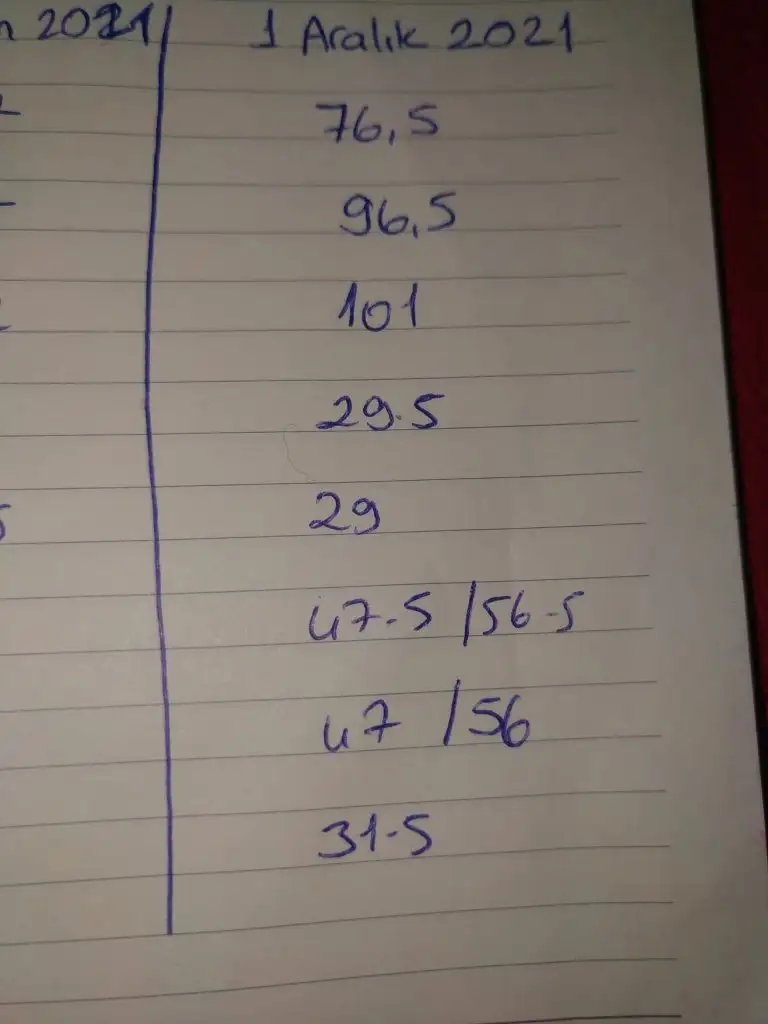 2021 1 Aralık 2021
76,5
96,5
101
29.5
29
47.5 / 56.5
47 / 56
31.5